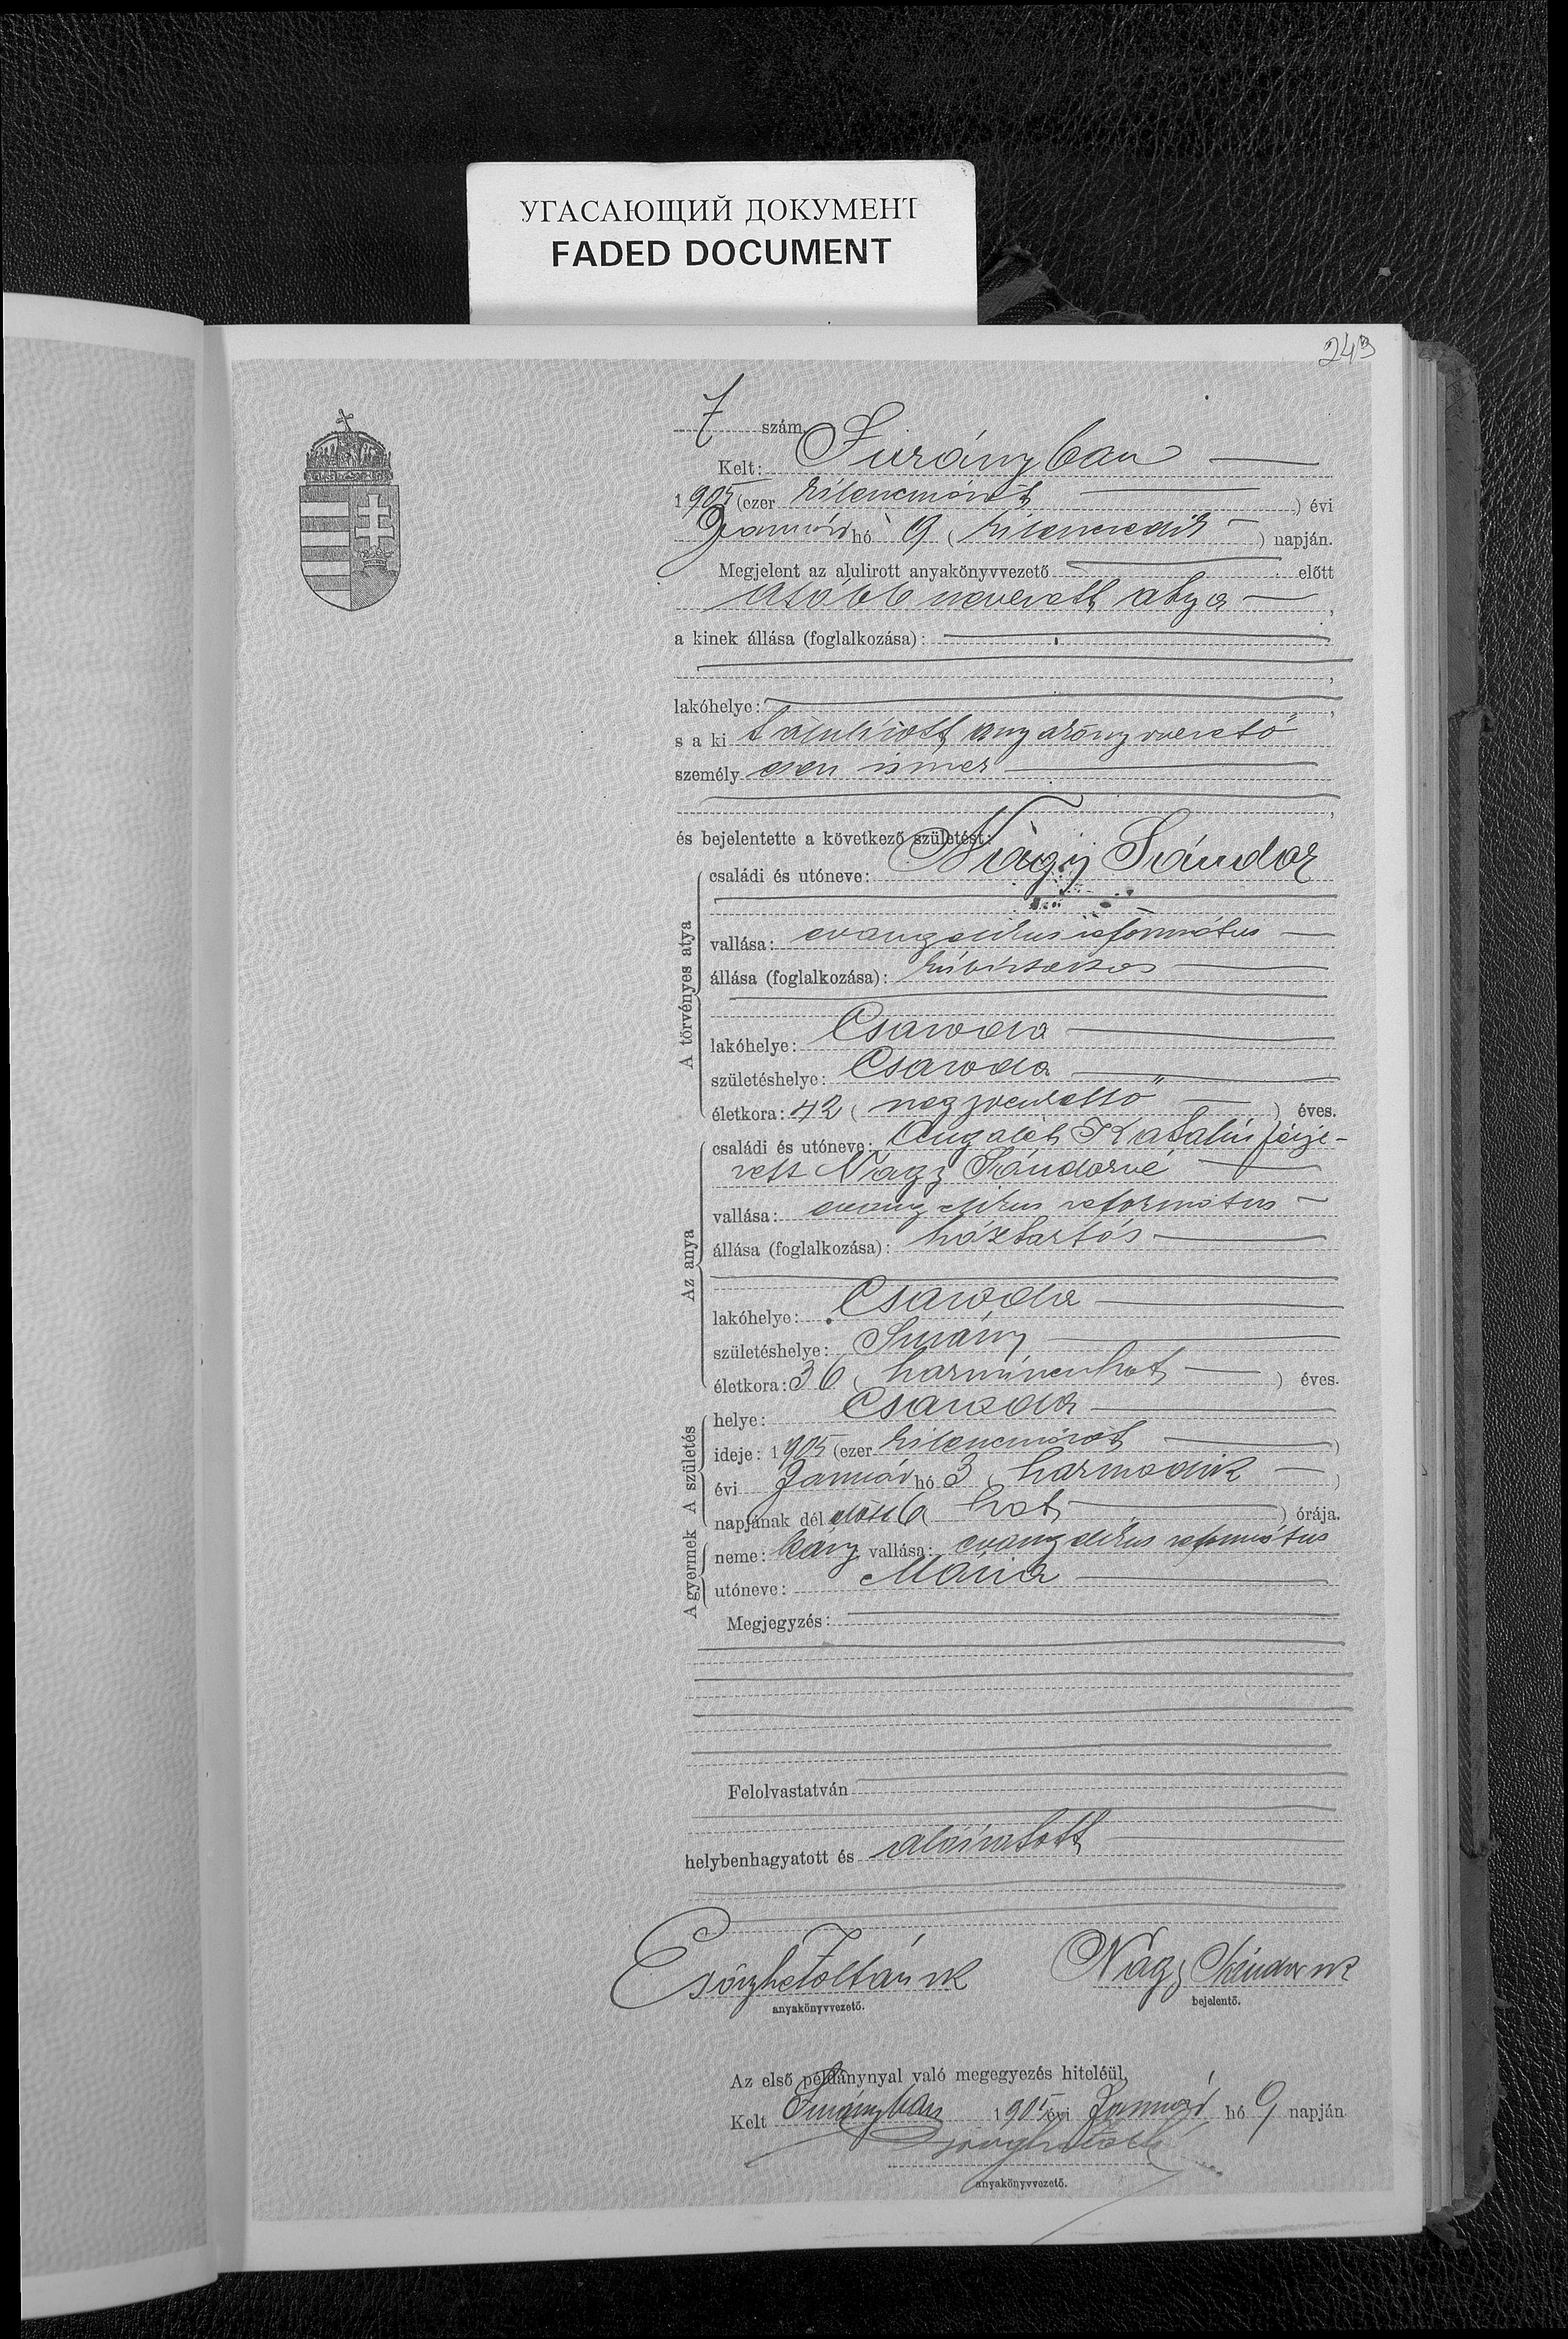 УГАСАЮЩИЙ ДОКУМЕНТ
FADED DOCUMENT
243
7 szám.
Kelt: Surányban
1905 (ezer kilencszázöt ) évi
Január hó 9 ( kilencedik ) napján.
Megjelent az alulirott anyakönyvvezető előtt
alább nevezett atya ,
a kinek állása (foglalkozása):
,
lakóhelye: ,
s a ki t alulírott anyakönyvvezető
személy esen ismer
,
és bejelentette a következő születést:
A törvényes atya
családi és utóneve: Nagy Sándor
vallása: evangelikus református
állása (foglalkozása): kisbirtokos
lakóhelye: Csaroda
születéshelye: Csaroda
életkora: 42 ( negyvenkettő ) éves.
Az anya
családi és utóneve: Katalin férje-
zett Nagy Sándorné
vallása: evangelikus református
állása (foglalkozása): háztartás
lakóhelye: Csaroda
születéshelye: Surány
életkora: 36 ( harminczhat ) éves.
A születés
helye: Csaroda
ideje: 1905 (ezer kilencszázöt )
évi Január hó 3 ( harmadik )
napjának dél előtt 6 ( hat ) órája.
A gyermek
neme: leány vallása: evangelikus református
utóneve: Mária
Megjegyzés:
Felolvastatván
helybenhagyatott és aláíratott
Zoltán sk Nagy Sándor sk
anyakönyvvezető. bejelentő.
Az első példánynyal való megegyezés hiteléül,
Kelt Surányban 1905 évi Január hó 9 napján
anyakönyvvezető.